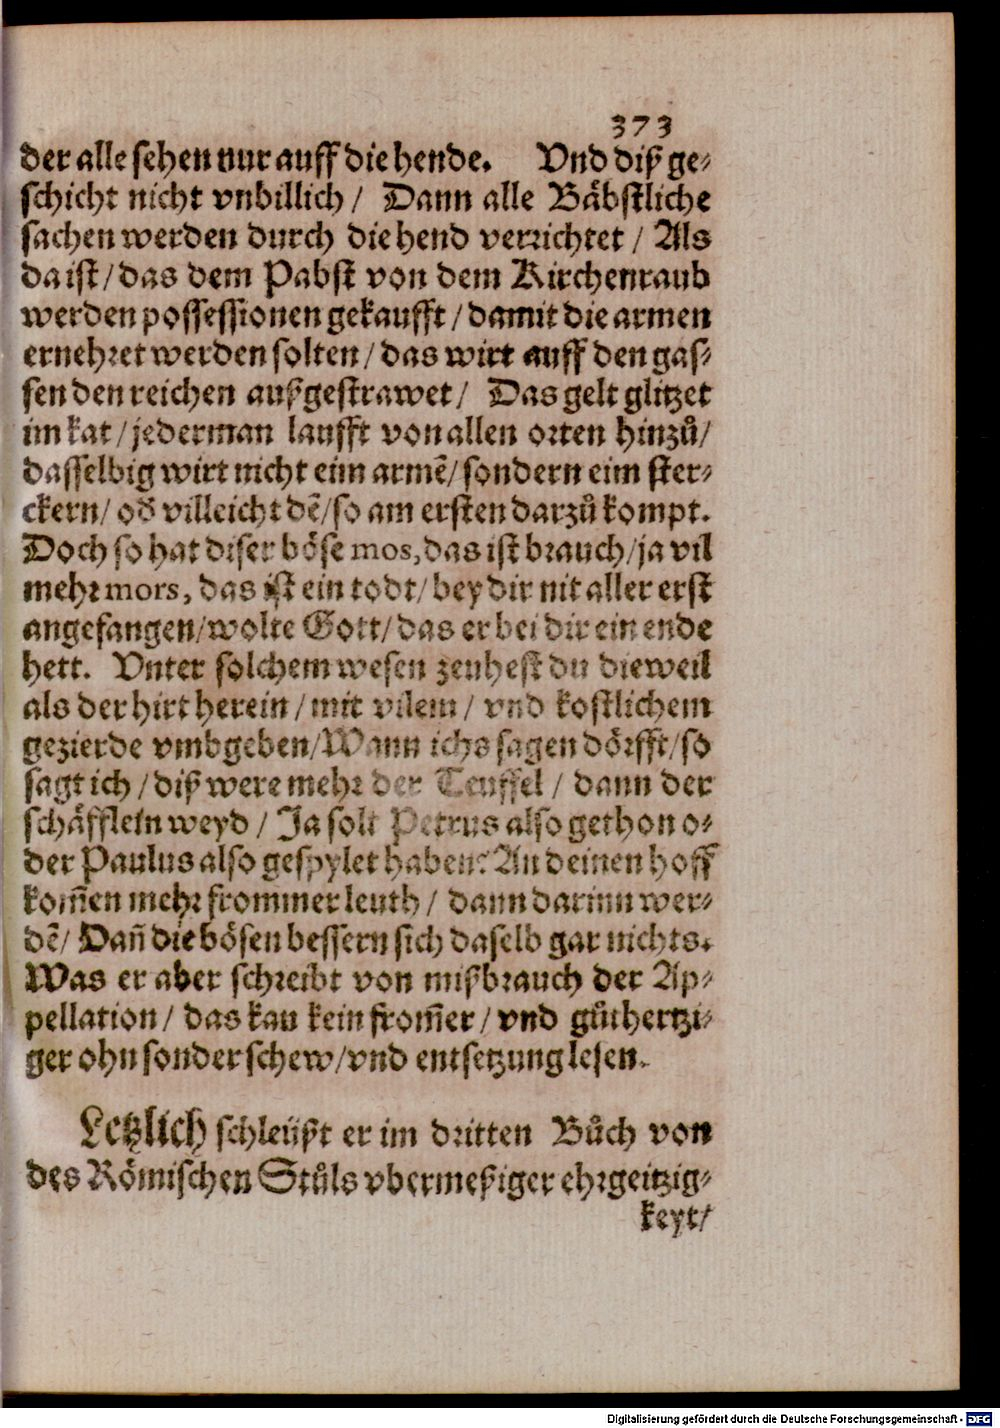 373
der alle sehen nur auff die hende. Vnd diß ge-
schicht nicht vnbillich / Dann alle Bäbstliche
sachen werden durch die hend verrichtet / Als
da ist / das dem Pabst von dem Kirchenraub
werden possessionen gekaufft / damit die armen
ernehret werden solten / das wirt auff den gas-
sen den reichen außgestrawet / Das gelt glitzet
im kat / jederman laufft von allen orten hinzů /
dasselbig wirt nicht eim armē / sondern eim ster-
ckern / od' villeicht dē / so am ersten darzů kompt.
Doch so hat diser böse mos, das ist brauch / ja vil
mehr mors, das ist ein todt / bey dir nit aller erst
angefangen / wolte Gott / das er bei dir ein ende
hett. Vnter solchem wesen zeuhest du dieweil
als der hirt herein / mit vilem / vnd kostlichem
gezierde vmbgeben / Wann ichs sagen dörfft / so
sagt ich / diß were mehr der Teuffel / dann der
schäfflein weyd / Ja solt Petrus also gethon o-
der Paulus also gespylet haben? An deinen hoff
kom̄en mehr frommer leuth / dann darinn wer-
dē / Dan̄ die bösen bessern sich daselb gar nichts.
Was er aber schreibt von mißbrauch der Ap-
pellation / das kan kein from̄er / vnd gůthertzi-
ger ohn sonder schew / vnd entsetzung lesen.
Letzlich schleüßt er im dritten Bůch von
des Römischen Stůls vbermeßiger ehrgeitzig-
keyt /
Digitalisierung gefördert durch die Deutsche Forschungsgemeinschaft - DFG